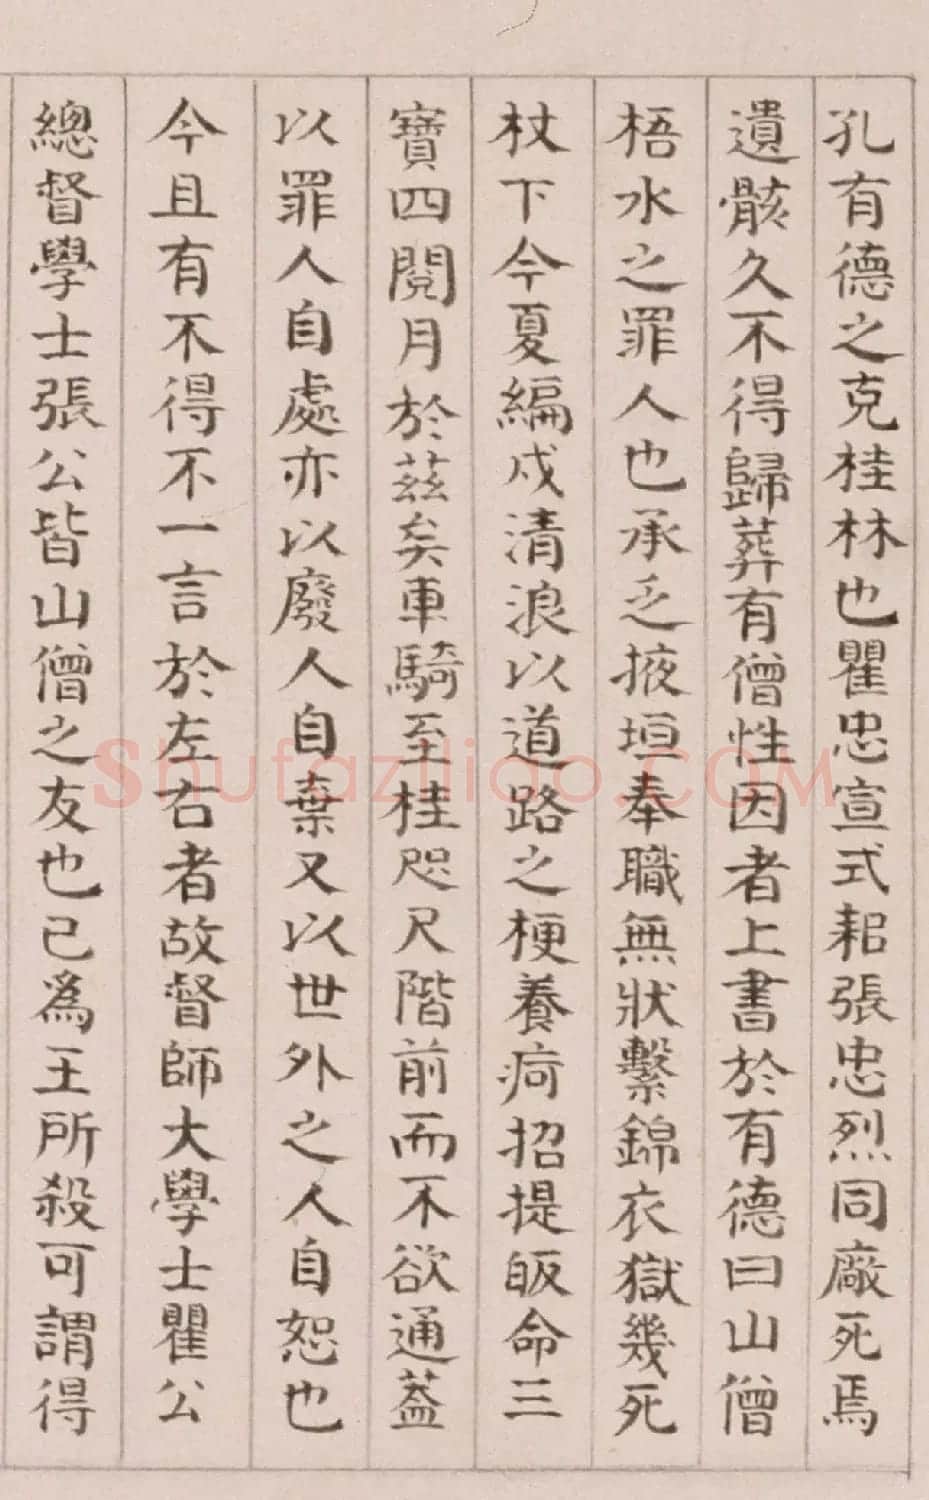 孔有德之克桂林也瞿忠宣式耜張忠烈同廠死焉
遺骸久不得歸葬有僧性因者上書於有德曰山僧
梧水之罪人也承乏掖垣奉職無狀繫錦衣獄幾死
杖下今夏編戍清浪以道路之梗養疴招提皈命三
寶四閱月於茲矣車騎至桂咫尺階前而不欲通蓋
以罪人自處亦以廢人自棄又以世外之人自恕也
今且有不得不一言於左右者故督師大學士瞿公
總督學士張公皆山僧之友也已為王所殺可謂得
Shufaziliao.COM